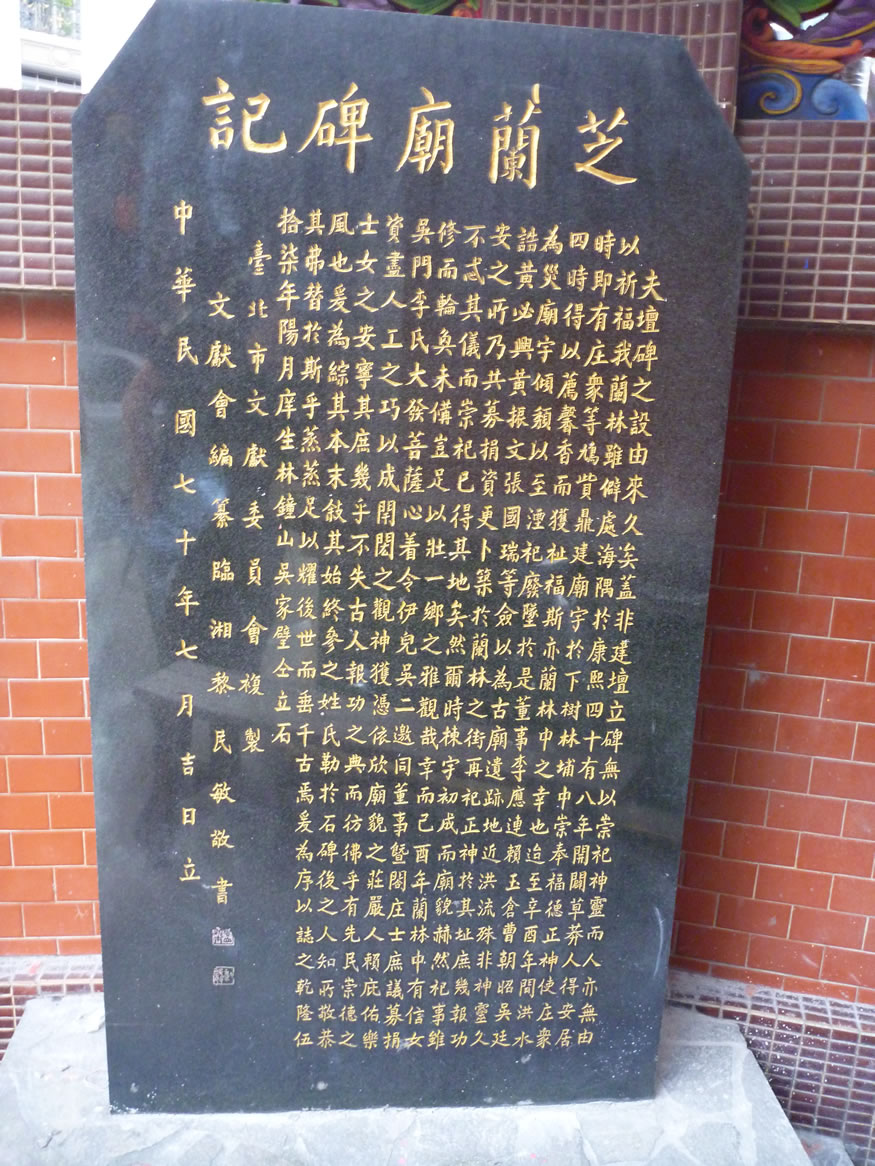 芝蘭廟碑記
夫壇碑之設由來久矣蓋非建壇立碑無以崇祀神靈而人亦無由
以祈福我蘭林雖僻處海隅於康熙四十有八年開闢草莽人得安居
時即有庄衆等鳩貲鼎建廟宇於下樹林埔中崇奉福德正神使庄衆
四時得以薦馨香而獲祉福斯亦蘭林中之幸也迨至辛酉年間洪水
為災廟宇傾頹以至湮祀廢墜於是董事李應連賴玉倉曹朝昭吳廷
誥黃必興黃振文張國瑞等僉以為古廟遺跡地近洪流殊非神靈久
安之所乃共募捐資更卜築於蘭林之街再祀正神於其址庶幾報功
不忒其儀而崇祀已得其地矣然爾時棟宇初成而廟貌赫然祀事雖
修而輪奐未備豈足以壯一鄉之雅觀哉幸而己酉年蘭林中有信女
吳門李氏大發善薩心着令伊兒吳二邀同董事暨閤庄士庶議募捐
資盡人工之巧以成閈閎之觀神獲憑依欣廟貌之莊嚴人賴庇佑樂
士女之安寧其庶幾乎不失古人報功之典而彷彿乎有先民崇德之
風也爰為綜其本末敍其始終參之姓氏勒於石碑後之人知所敬恭
其弗替於斯乎蒸蒸足以耀後世而垂千古焉爰為序以誌之乾隆伍
拾柒年陽月庠生林鐘山吳家壁仝立石
臺北市文獻委員會複製
文獻會編纂臨湘黎民敏敬書
中華民國七十年七月吉日立